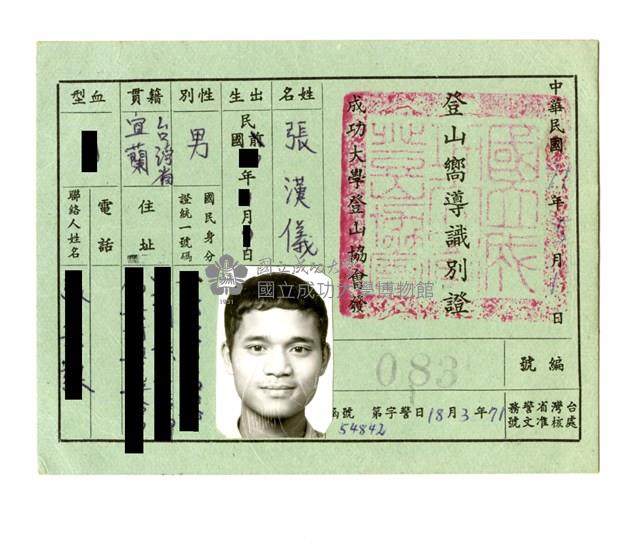 中華民國 年 月 日
登山嚮導識別證
成功大學登山協會發
編號
083
姓名
張漢儀
出生
民國前 年 月 日
性別
男
籍貫
台灣省
宜蘭
血型
國民身分證統一號碼
住址
電話
聯絡人姓名
台灣省警務處核准文號
71年3月18日警字第 號
54842
國立成功大學
國立成功大學博物館
1931